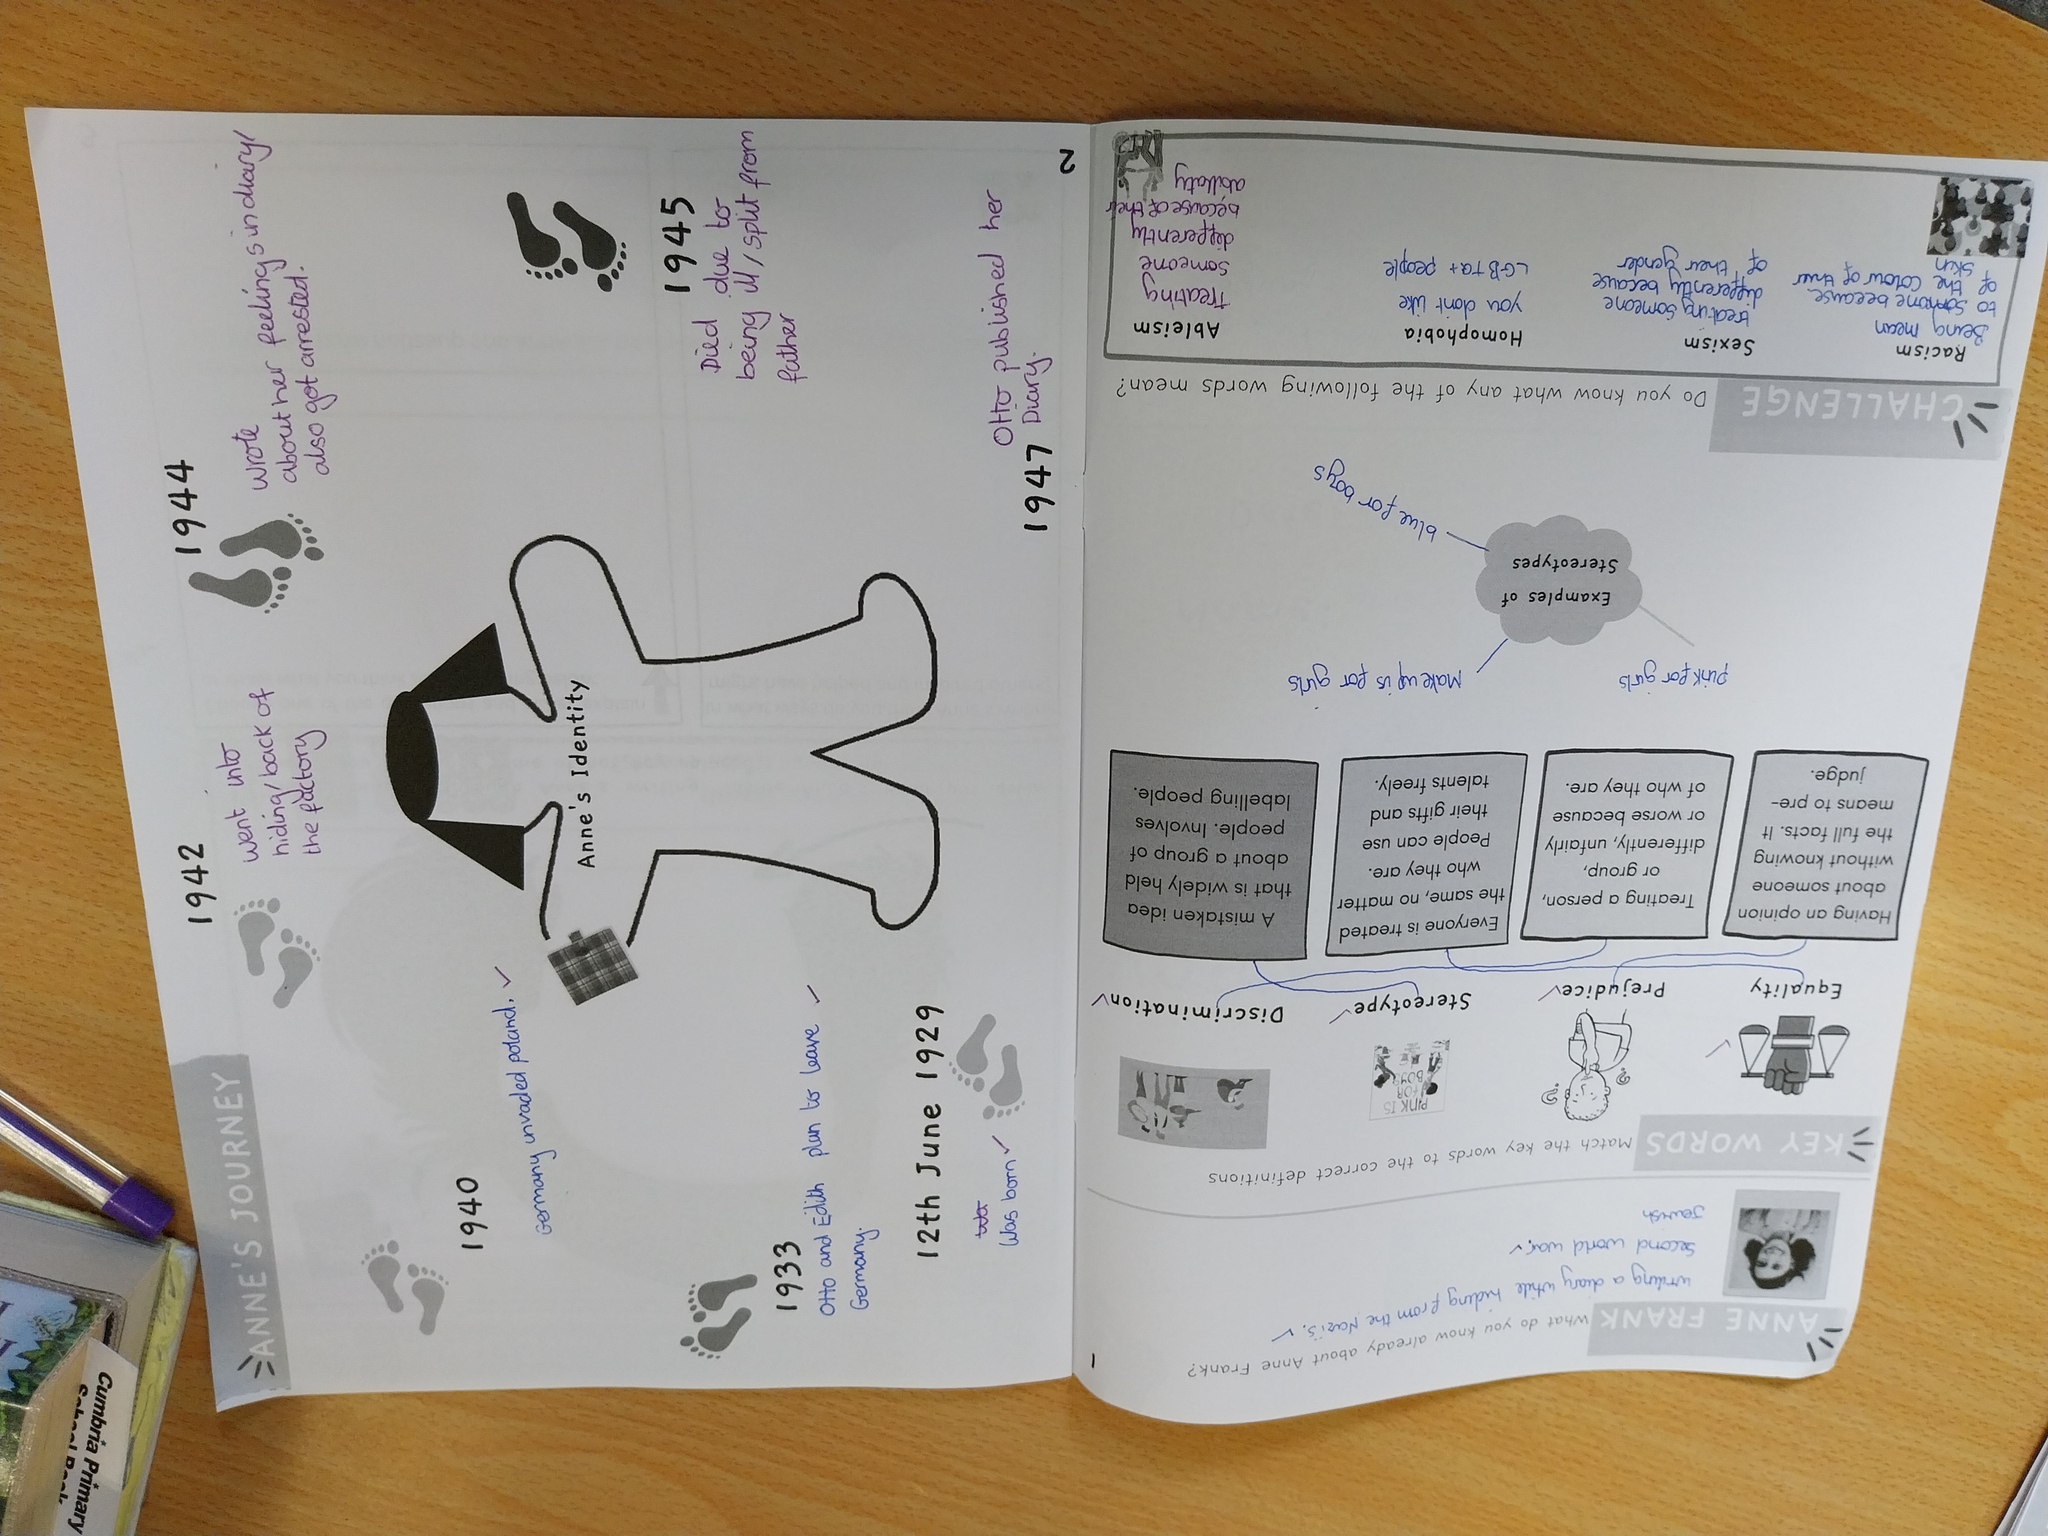 ANNE FRANK
What do you know already about Anne Frank?
1
writing a diary while hiding from the Nazi's.
Second world war.
Jewish
KEY WORDS
Match the key words to the correct definitions
PINK IS
FOR
BOYS
Equality
Prejudice
Stereotype
Discrimination
Having an opinion
about someone
without knowing
the full facts. It
means to pre-
judge.
Treating a person,
or group,
differently, unfairly
or worse because
of who they are.
Everyone is treated
the same, no matter
who they are.
People can use
their gifts and
talents freely.
A mistaken idea
that is widely held
about a group of
people. Involves
labelling people.
pink for girls
Make up is for girls
Examples of
Stereotypes
blue for boys
CHALLENGE
Do you know what any of the following words mean?
Racism
Being mean
to someone because
of the colour of thier
skin
Sexism
treating someone
differently because
of their gender
Homophobia
you dont like
LGBTQ+ people
Ableism
Treating
someone
differently
because of their
abillaty
ANNE'S JOURNEY
1940
Germany invaded poland.
1942
went into
hiding/back of
the factory
1944
wrote
about her feelings in diary/
also got arrested.
Anne's Identity
1933
Otto and Edith plan to leave
Germany.
12th June 1929
Was born
1945
Died due to
being ill, split from
father
1947
Otto published her
Diary.
2
Cumbria Primary
School Book